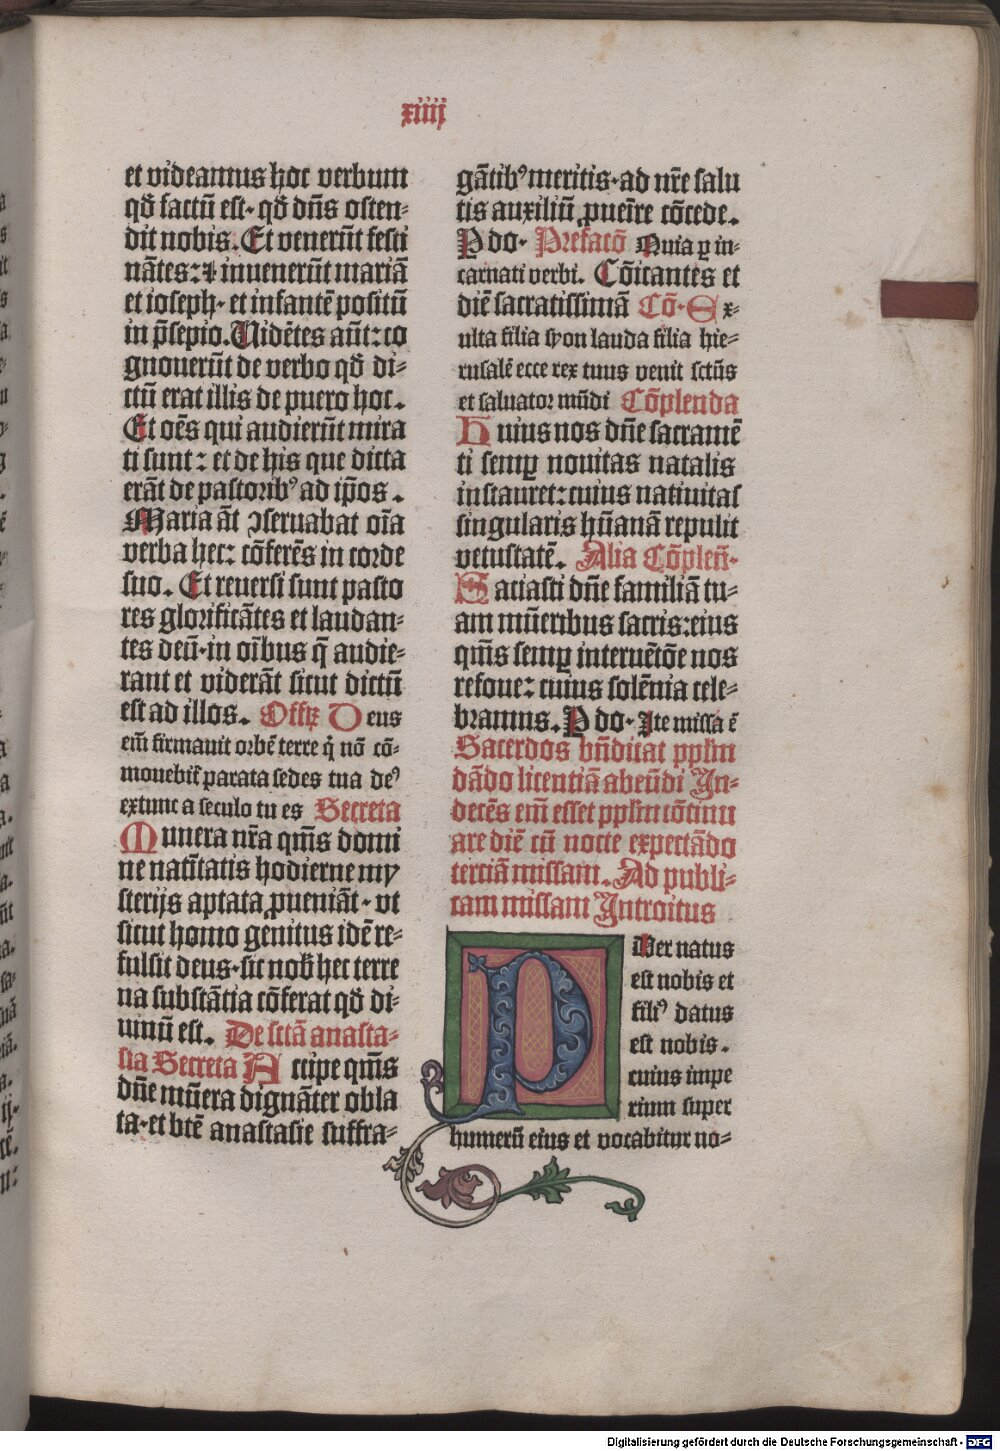 xiiij
et videamus hoc verbum
qđ factū est· qđ dn̄s osten⸗
dit nobis. Et venerūt festi
nātes: ⁊ inuenerūt mariā
et ioseph· et infantē positū
in p̄sepio. Uidētes aūt: co
gnouerūt de verbo qđ di⸗
ctū erat illis de puero hoc.
Et oēs qui audierūt mira
ti sunt: et de his que dicta
erāt de pastoribꝰ ad ip̄os.
Maria āt ꝯseruabat oīa
verba hec: cōferēs in corde
suo. Et reuersi sunt pasto
res glorificātes et laudan⸗
tes deū· in oībus q̄ audie⸗
rant et viderāt sicut dictū
est ad illos. Offꝫ Deus
em̄ firmauit orbē terre q̇ nō cō⸗
mouebit᷑ parata sedes tua deꝰ
extunc a seculo tu es Secreta
Munera nr̄a qm̄s domi
ne natītatis hodierne my
sterijs aptata ꝓueniāt· vt
sicut homo genitus idē re⸗
fulsit deus· sic nob̄ hec terre
na substātia cōferat qđ di⸗
uinū est. De sctā anasta⸗
sia Secreta Accipe qm̄s
dn̄e mūera dignāter obla
ta· et btē anastasie suffra⸗
gātibꝰ meritis· ad nr̄e salu
tis auxiliū ꝓuēire cōcede.
P do· Prefacō Quia ꝑ in⸗
carnati verbi. Cōicantes et
diē sacratissimā Cō· Ex⸗
ulta filia syon lauda filia hie⸗
rusalē ecce rex tuus venit sctūs
et saluator mūdi Cōplenda
Huius nos dn̄e sacramē
ti semꝑ nouitas natalis
instauret: cuius natiuitas
singularis hūanā repulit
vetustatē. Alia Cōplen̄·
Saciasti dn̄e familiā tu⸗
am mūeribus sacris: eius
qm̄s semꝑ interuētōe nos
refoue: cuius solēnia cele⸗
bramus. P do· Ite missa ē
Sacerdos bn̄dicat pplm
dādo licentiā abeūdi In⸗
decēs em̄ esset pplm cōtinu
are diē cū nocte expectādo
terciā missam. Ad publi⸗
cam missam Introitus
PUer natus
est nobis et
filiꝰ datus
est nobis.
cuius impe
rium super
humerū eius et vocabitur no⸗
Digitalisierung gefördert durch die Deutsche Forschungsgemeinschaft - DFG